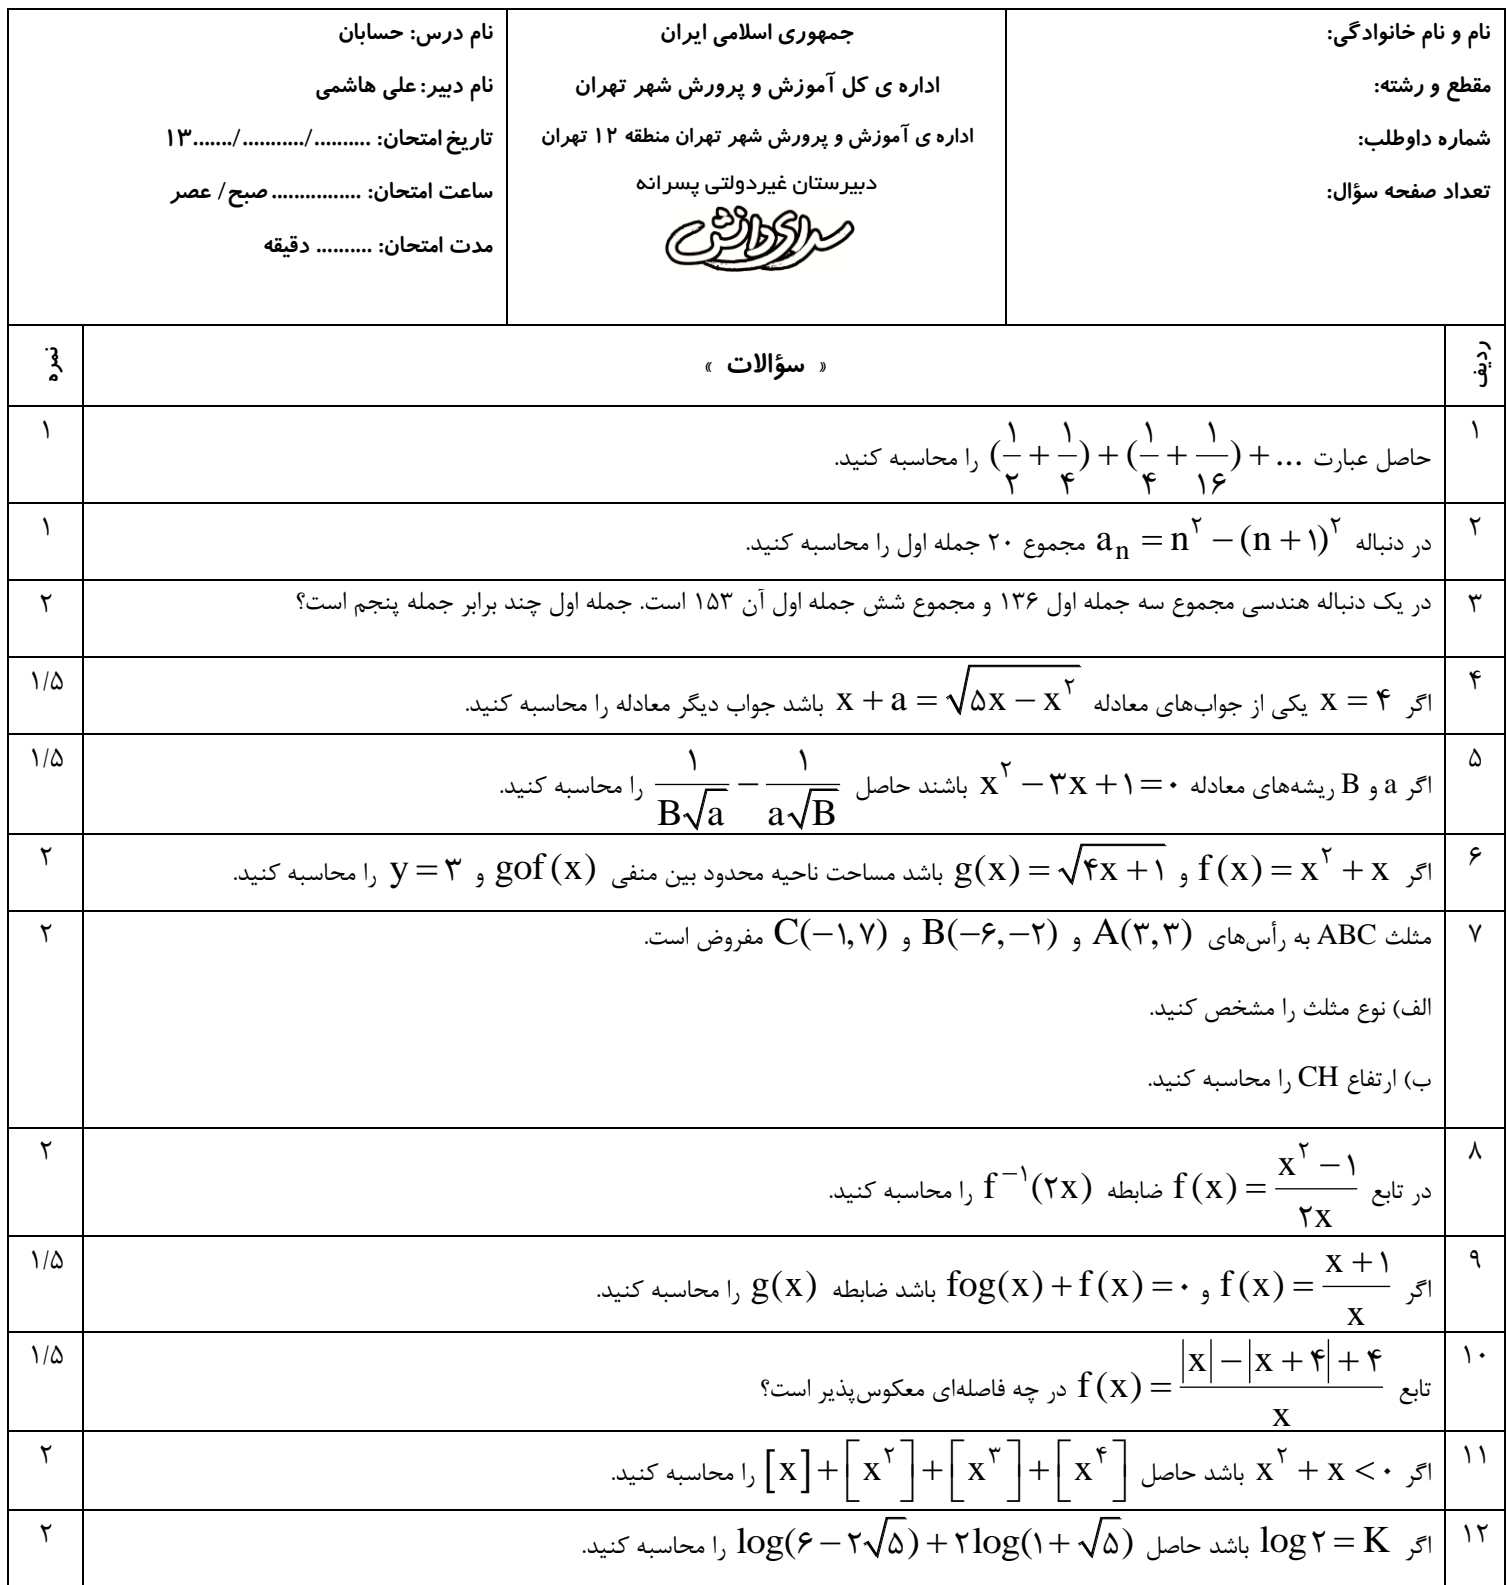 نام و نام خانوادگی:
مقطع و رشته:
شماره داوطلب:
تعداد صفحه سؤال:
جمهوری اسلامی ایران
اداره ی کل آموزش و پرورش شهر تهران
اداره ی آموزش و پرورش شهر تهران منطقه ۱۲ تهران
دبیرستان غیردولتی پسرانه
سرای دانش
نام درس: حسابان
نام دبیر: علی هاشمی
تاریخ امتحان: ........../.........../.......۱۳
ساعت امتحان: ................ صبح/ عصر
مدت امتحان: .......... دقیقه
ردیف « سؤالات » نمره
۱ حاصل عبارت (۱/۲ + ۱/۴) + (۱/۴ + ۱/۱۶) + ... را محاسبه کنید. ۱
۲ در دنباله aₙ = n² − (n + ۱)² مجموع ۲۰ جمله اول را محاسبه کنید. ۱
۳ در یک دنباله هندسی مجموع سه جمله اول ۱۳۶ و مجموع شش جمله اول آن ۱۵۳ است. جمله اول چند برابر جمله پنجم است؟ ۲
۴ اگر x = ۴ یکی از جواب‌های معادله x + a = √(۵x − x²) باشد جواب دیگر معادله را محاسبه کنید. ۱/۵
۵ اگر a و B ریشه‌های معادله x² − ۳x + ۱ = ۰ باشند حاصل ۱/(B√a) − ۱/(a√B) را محاسبه کنید. ۱/۵
۶ اگر f(x) = x² + x و g(x) = √(۴x + ۱) باشد مساحت ناحیه محدود بین منفی gof(x) و y = ۳ را محاسبه کنید. ۲
۷ مثلث ABC به رأس‌های A(۳,۳) و B(−۶,−۲) و C(−۱,۷) مفروض است. ۲
الف) نوع مثلث را مشخص کنید.
ب) ارتفاع CH را محاسبه کنید.
۸ در تابع f(x) = (x² − ۱)/۲x ضابطه f⁻¹(۲x) را محاسبه کنید. ۲
۹ اگر f(x) = (x + ۱)/x و fog(x) + f(x) = ۰ باشد ضابطه g(x) را محاسبه کنید. ۱/۵
۱۰ تابع f(x) = (|x| − |x + ۴| + ۴)/x در چه فاصله‌ای معکوس‌پذیر است؟ ۱/۵
۱۱ اگر x² + x < ۰ باشد حاصل [x] + [x²] + [x³] + [x⁴] را محاسبه کنید. ۲
۱۲ اگر log۲ = K باشد حاصل log(۶ − ۲√۵) + ۲log(۱ + √۵) را محاسبه کنید. ۲